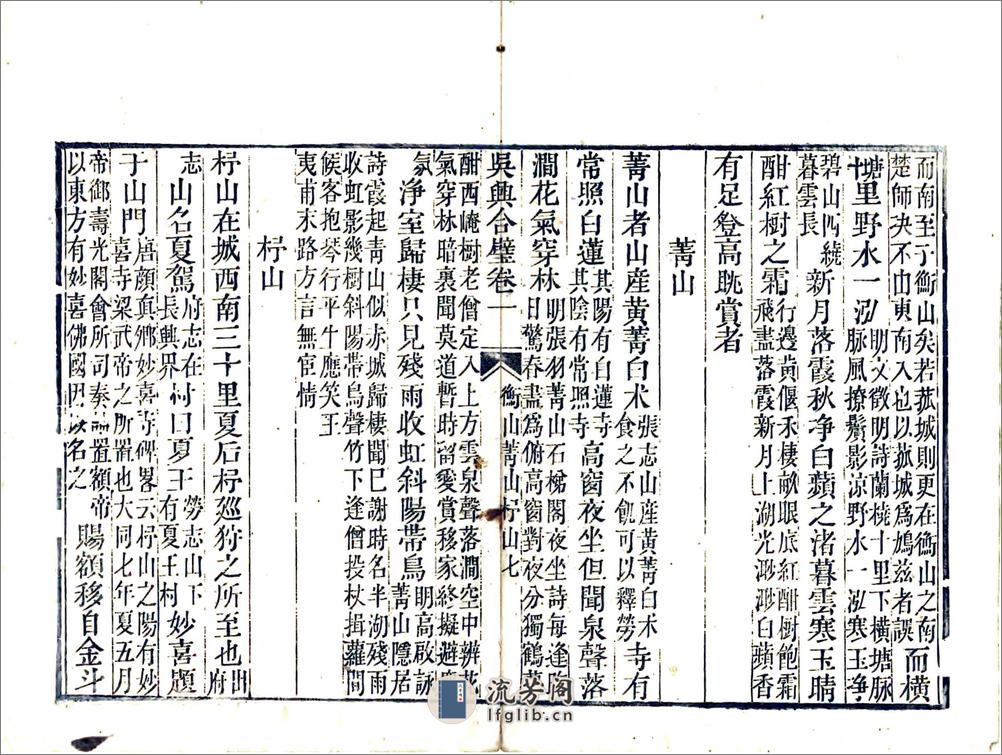 而南至于衡山矣若菰城則更在衡山之南
楚師決不由東南入也以菰城爲鳩兹者誤
而橫
塘十里野水一泓
明文徵明詩蘭橈十里下橫塘脉
脉風撩鬢影涼野水一泓寒玉淨
碧山四繞
暮雲長
新月落霞秋淨白蘋之渚暮雲寒玉晴
酣紅樹之霜
行邊黃偃禾棲畝眼底紅酣樹飽霜
飛盡落霞新月上湖光渺渺白蘋香
有足登高眺賞者
菁山
菁山者山産黃菁白术
張志山産黃菁白术
食之不飢可以釋勞
寺有
常照白蓮
其陽有白蓮寺
其陰有常照寺
高窗夜坐但聞泉聲落
澗花氣穿林
明張羽菁山石梯閣夜坐詩每逢
日驚春盡爲俯高窗對夜分獨鶴
吳興合璧卷一
衡山菁山杼山 七
酣西崦樹老僧定入上方雲泉聲落澗空中辨花
氣穿林暗裏聞莫道暫時留愛賞移家終擬避
氛
淨室歸棲只見殘雨收虹斜陽帶鳥
明高啟詠
菁山隱居
詩霞起青山似赤城歸棲聞已謝時名半湖殘雨
收虹影幾樹斜陽帶鳥聲竹下逢僧投杖揖蘿間
候客抱琴行平牛應笑王
夷甫末路方言無宦情
杼山
杼山在城西南三十里夏后杼巡狩之所至也
出
府
志
山名夏駕
府志在
長興界
村曰夏王
勞志山下
有夏王村
妙喜題
于山門
唐顔真卿妙喜寺碑畧云杼山之陽有妙
喜寺梁武帝之所置也大同七年夏五月
帝御壽光閣會所司奏請置額帝
以東方有妙喜佛國因以名之
賜額移自金斗
流芳閣
lfglib.cn